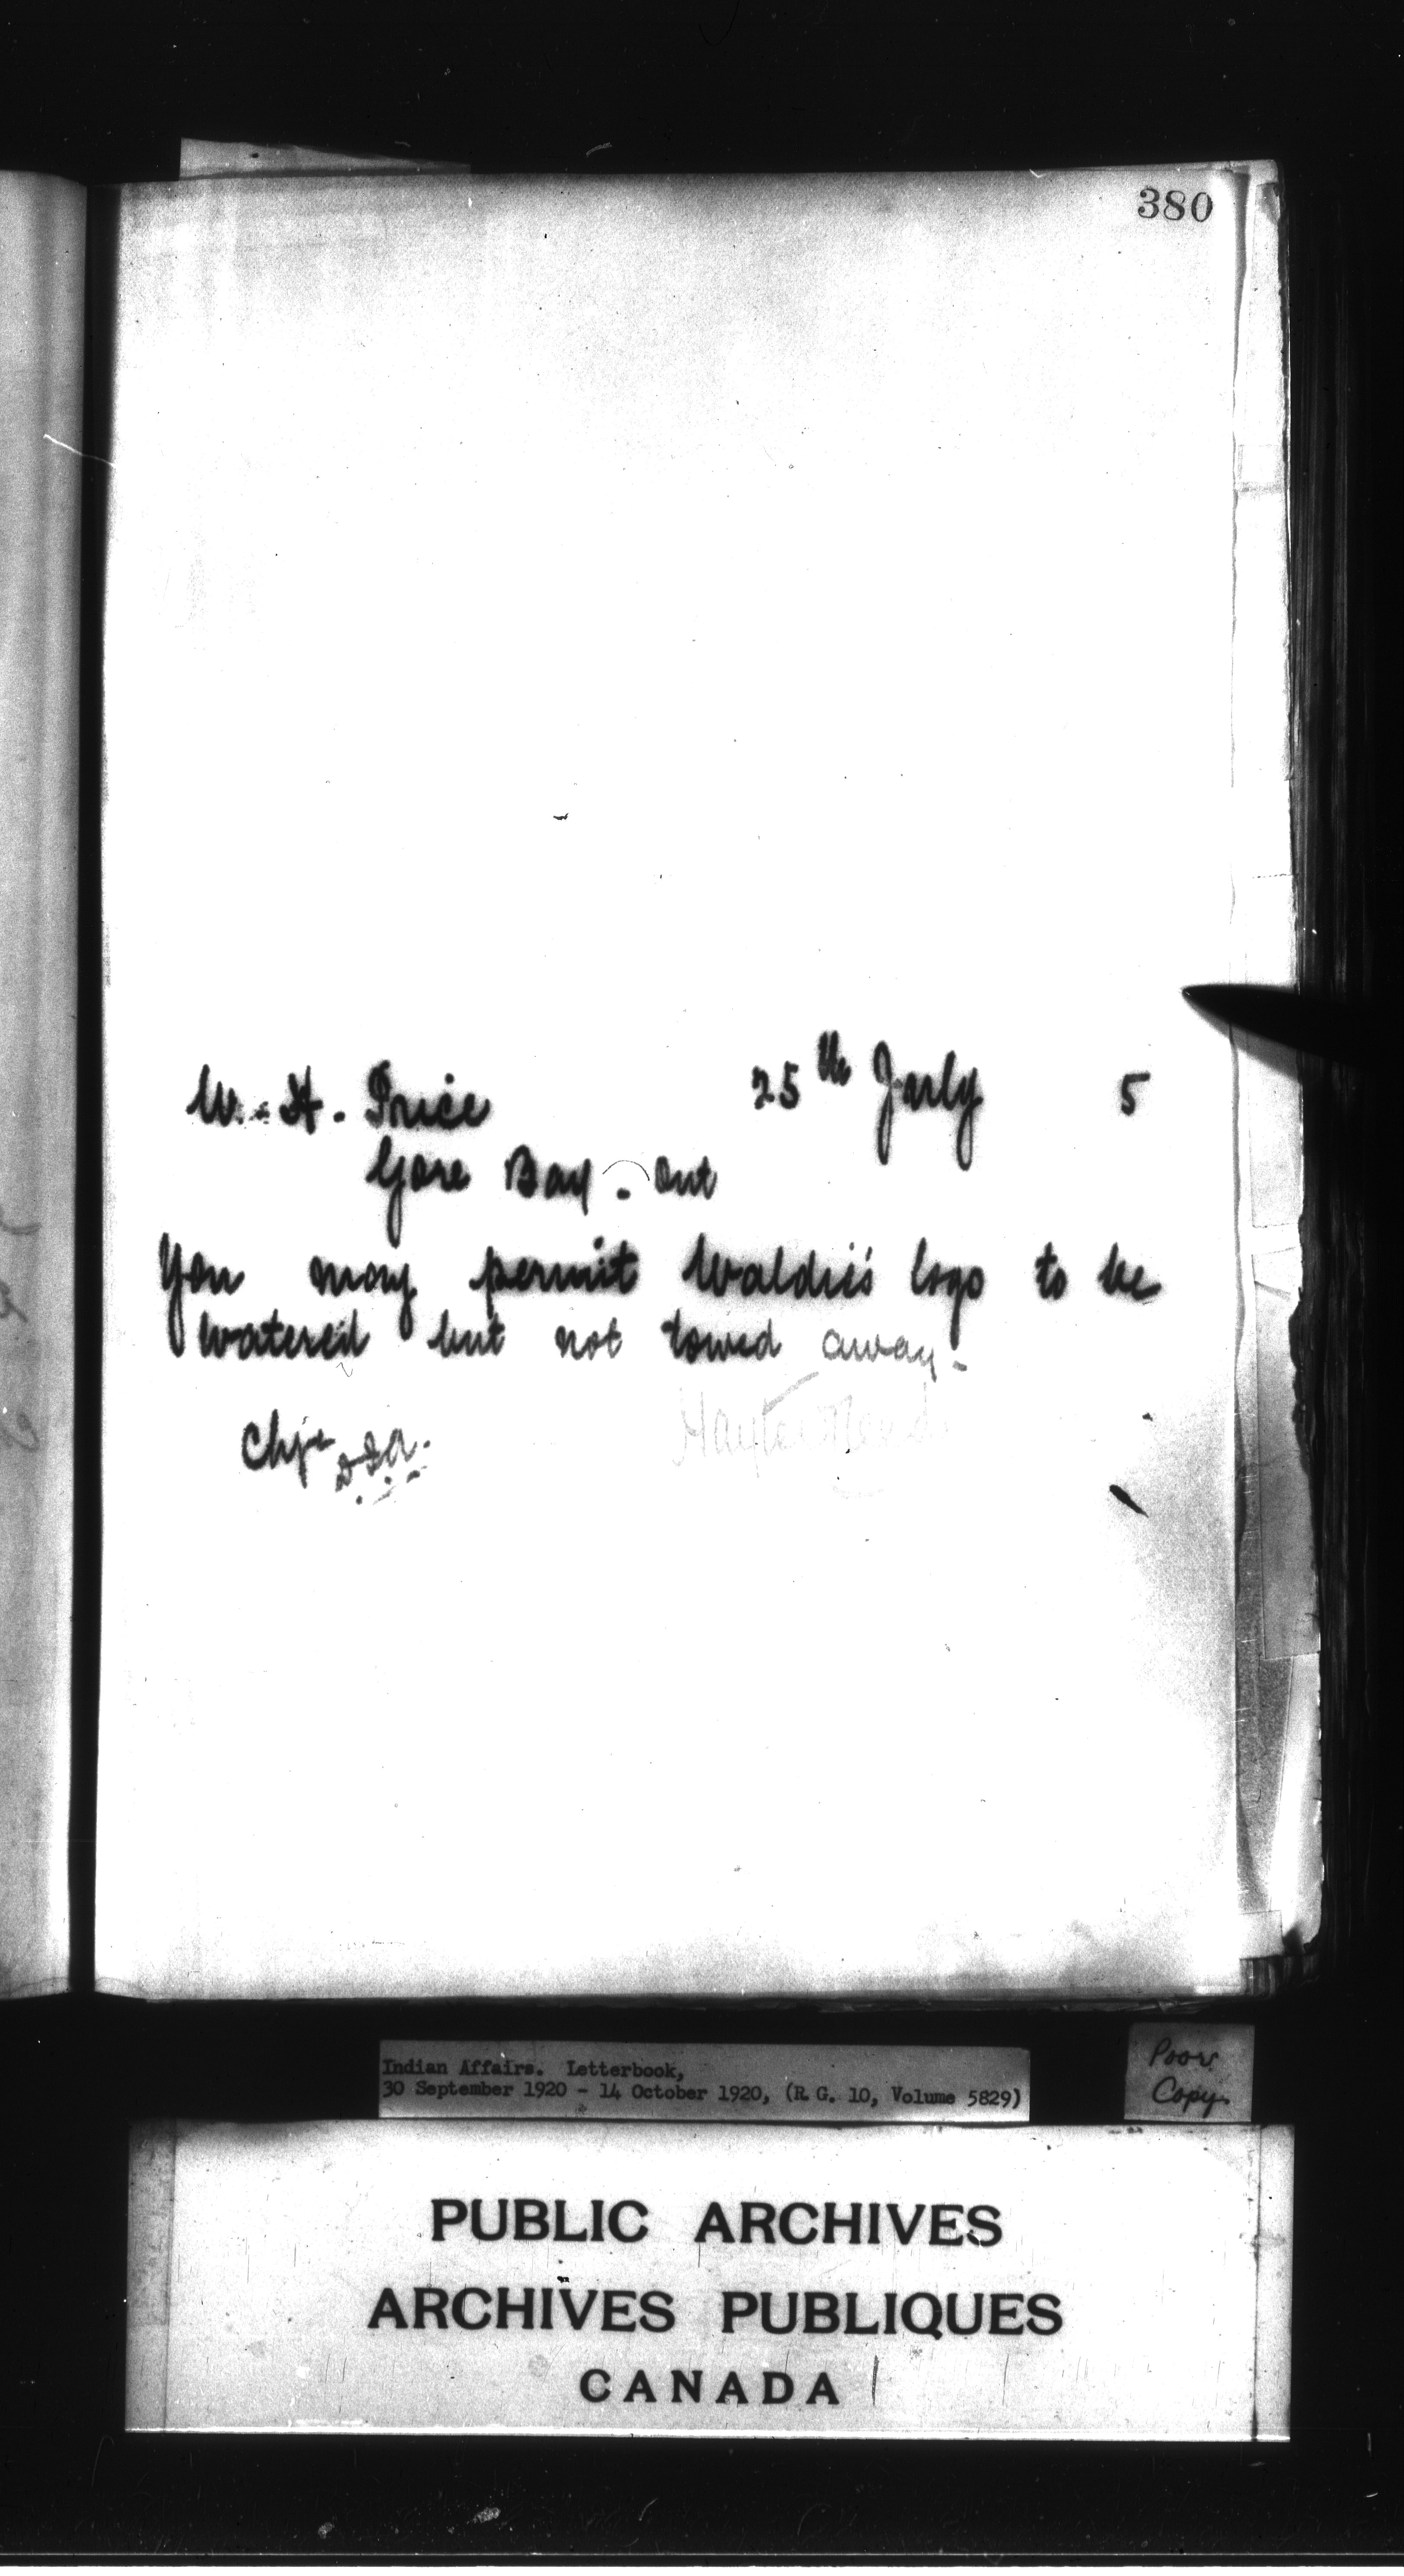 380
W. H. Price 25th July 5
Gore Bay. Ont
You may permit Waldie's logs to be
watered but not towed away.
Chge D.I.A.
Hayter Reed
Indian Affairs. Letterbook,
30 September 1920 - 14 October 1920, (R.G. 10, Volume 5829)
Poor
Copy
PUBLIC ARCHIVES
ARCHIVES PUBLIQUES
CANADA